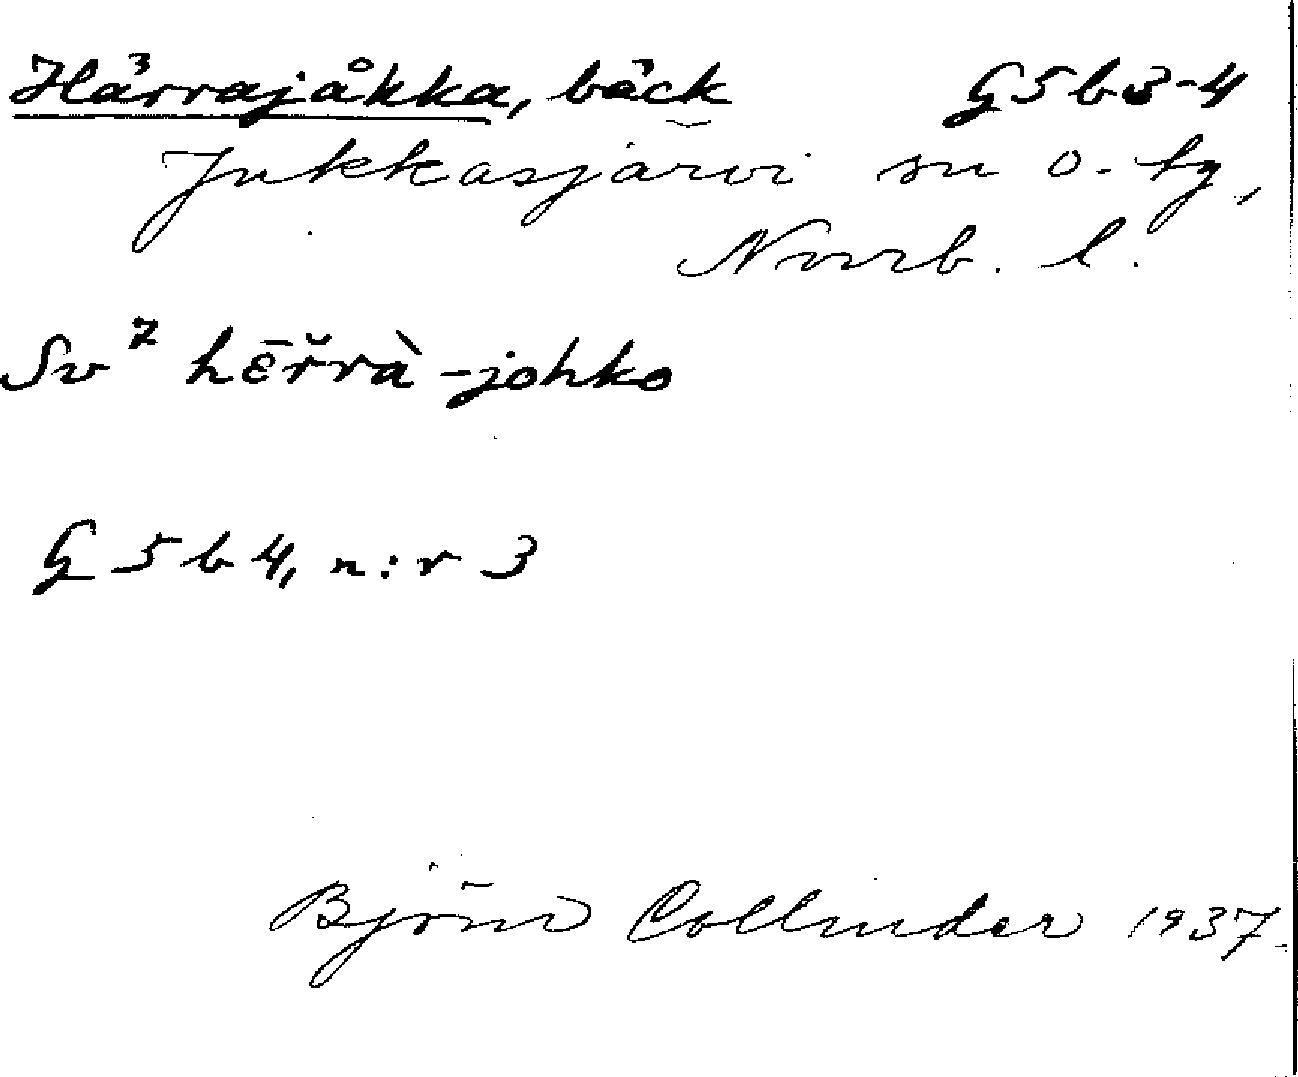 Härrajåkka, bäck G5b3-4
Jukkasjärvi sn o. tg,
Norrb. l.
Sv⁷ hɛ̄r̆rà-johko
G5b4, n:r 3
Björn Collinder 1937.